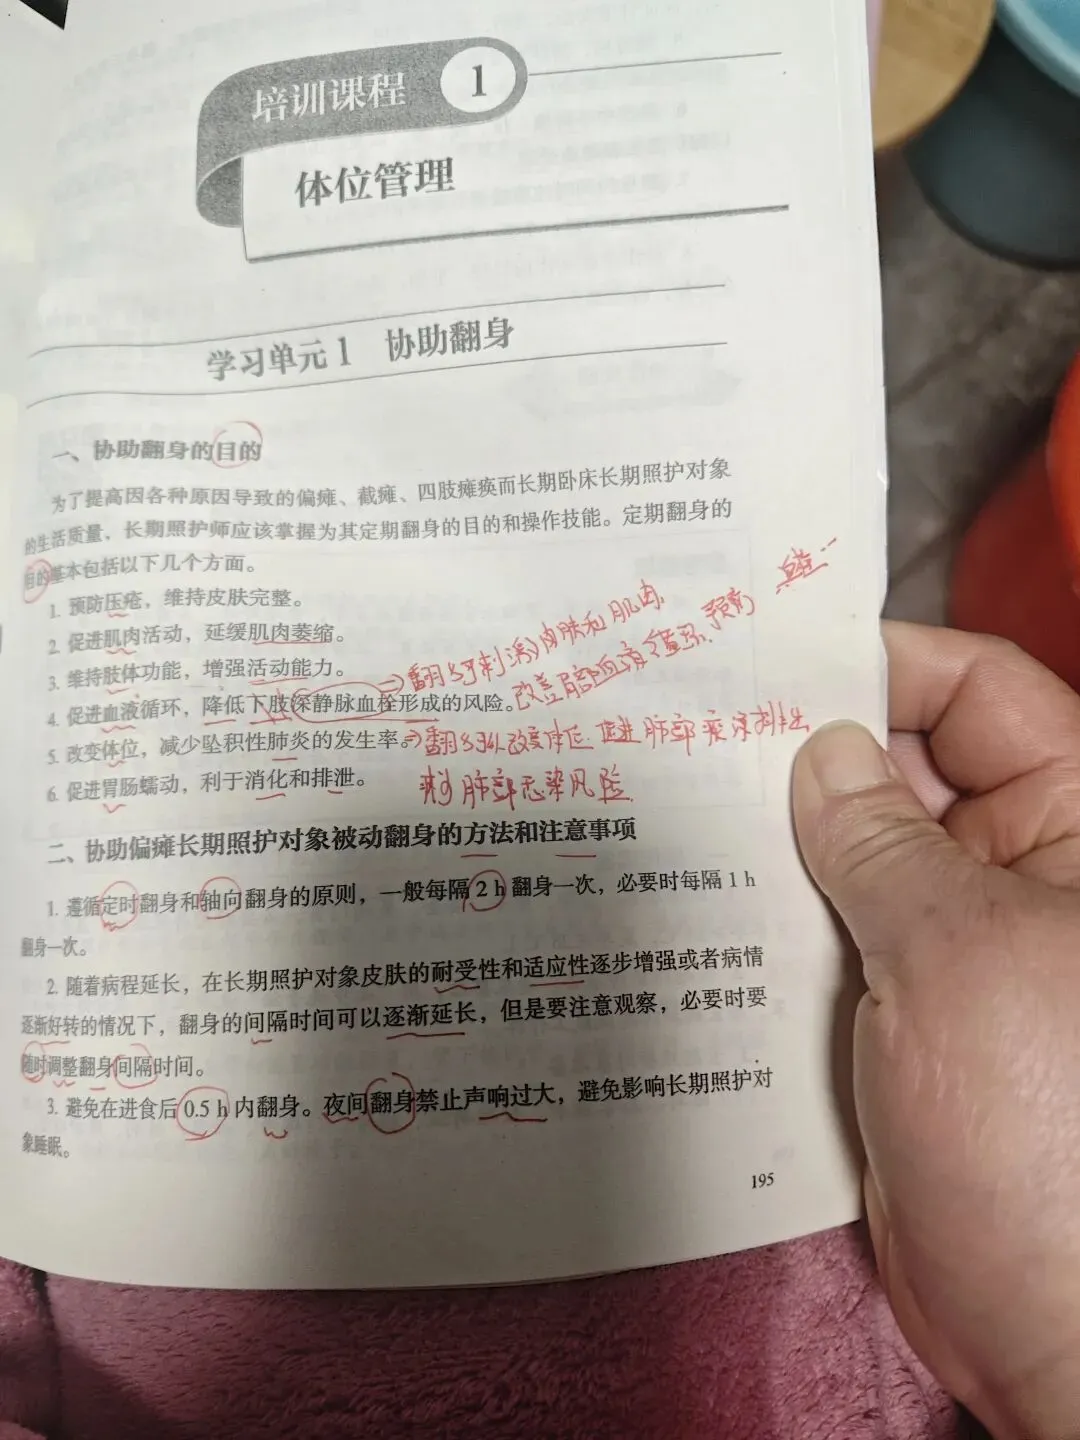 培训课程 1
体位管理
学习单元1 协助翻身
一、协助翻身的目的
为了提高因各种原因导致的偏瘫、截瘫、四肢瘫痪而长期卧床长期照护对象
的生活质量，长期照护师应该掌握为其定期翻身的目的和操作技能。定期翻身的
目的基本包括以下几个方面。
1. 预防压疮，维持皮肤完整。
2. 促进肌肉活动，延缓肌肉萎缩。
3. 维持肢体功能，增强活动能力。
翻身刺激皮肤和肌肉
4. 促进血液循环，降低下肢深静脉血栓形成的风险。
改善局部血液循环、预防
5. 改变体位，减少坠积性肺炎的发生率。
翻身改变体位 促进肺部痰液排出
6. 促进胃肠蠕动，利于消化和排泄。
肺部感染风险
二、协助偏瘫长期照护对象被动翻身的方法和注意事项
1. 遵循定时翻身和轴向翻身的原则，一般每隔 2 h 翻身一次，必要时每隔 1 h
翻身一次。
2. 随着病程延长，在长期照护对象皮肤的耐受性和适应性逐步增强或者病情
逐渐好转的情况下，翻身的间隔时间可以逐渐延长，但是要注意观察，必要时要
随时调整翻身间隔时间。
3. 避免在进食后 0.5 h 内翻身。夜间翻身禁止声响过大，避免影响长期照护对
象睡眠。
195